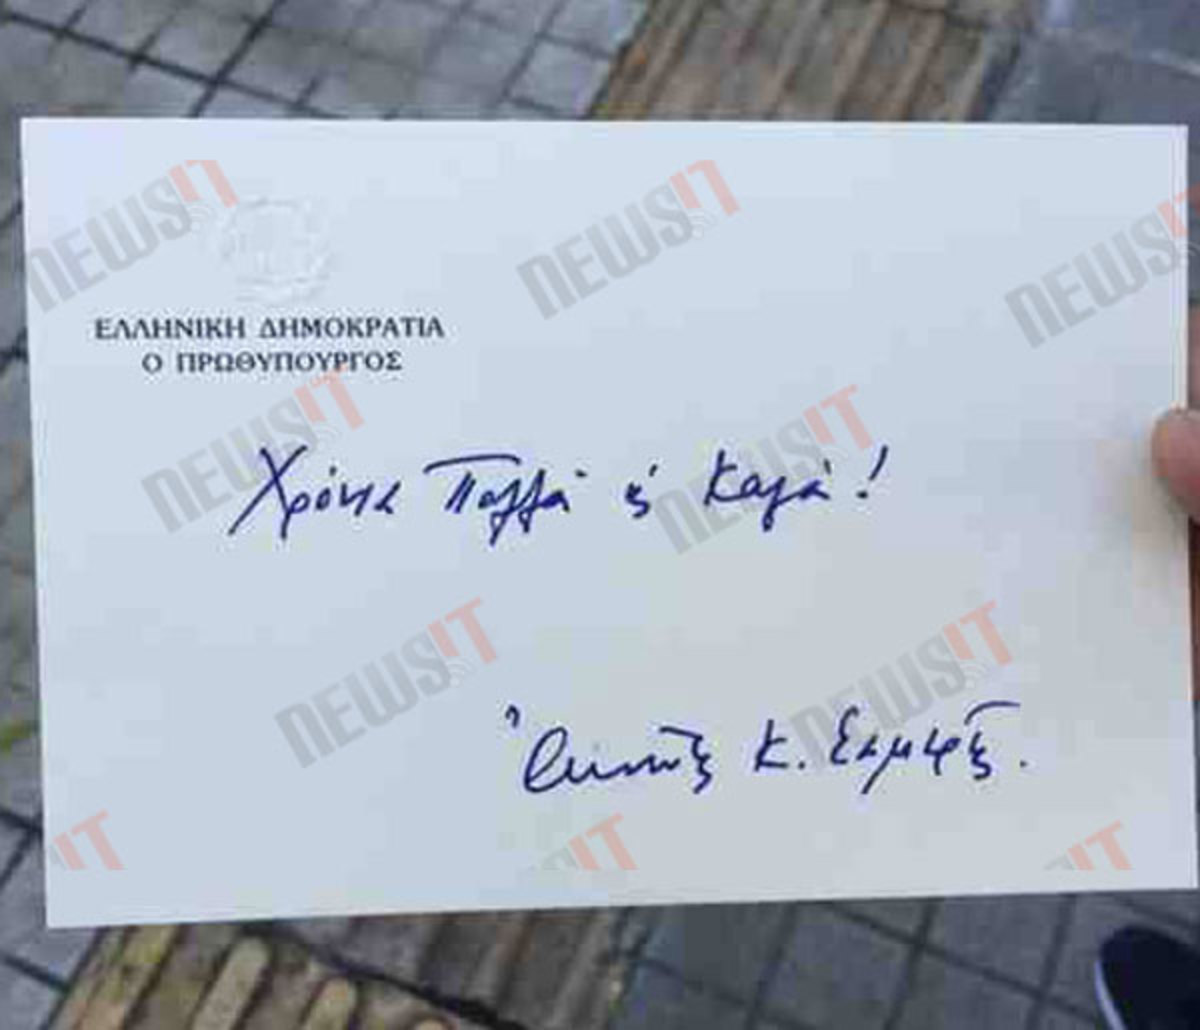 ΕΛΛΗΝΙΚΗ ΔΗΜΟΚΡΑΤΙΑ
Ο ΠΡΩΘΥΠΟΥΡΓΟΣ
Χρόνια Πολλά & Καλά!
Ἀντώνης Κ. Σαμαρᾶς.
NEWSIT
NEWSIT
NEWSIT
NEWSIT
NEWSIT
NEWSIT
NEWSIT
IT
IT
IT